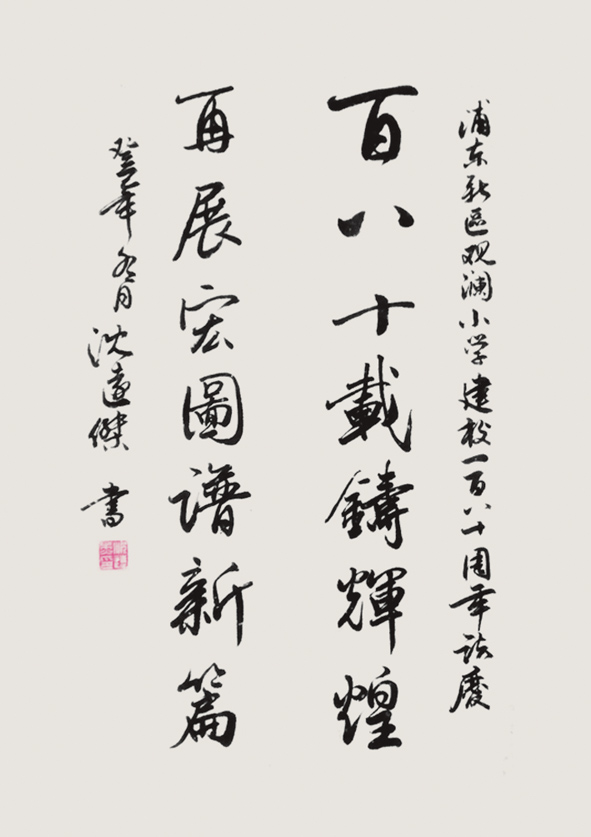 浦东新區观澜小学建校一百八十周年誌慶
百八十載鑄輝煌
再展宏圖譜新篇
癸卯年冬月沈遠傑書